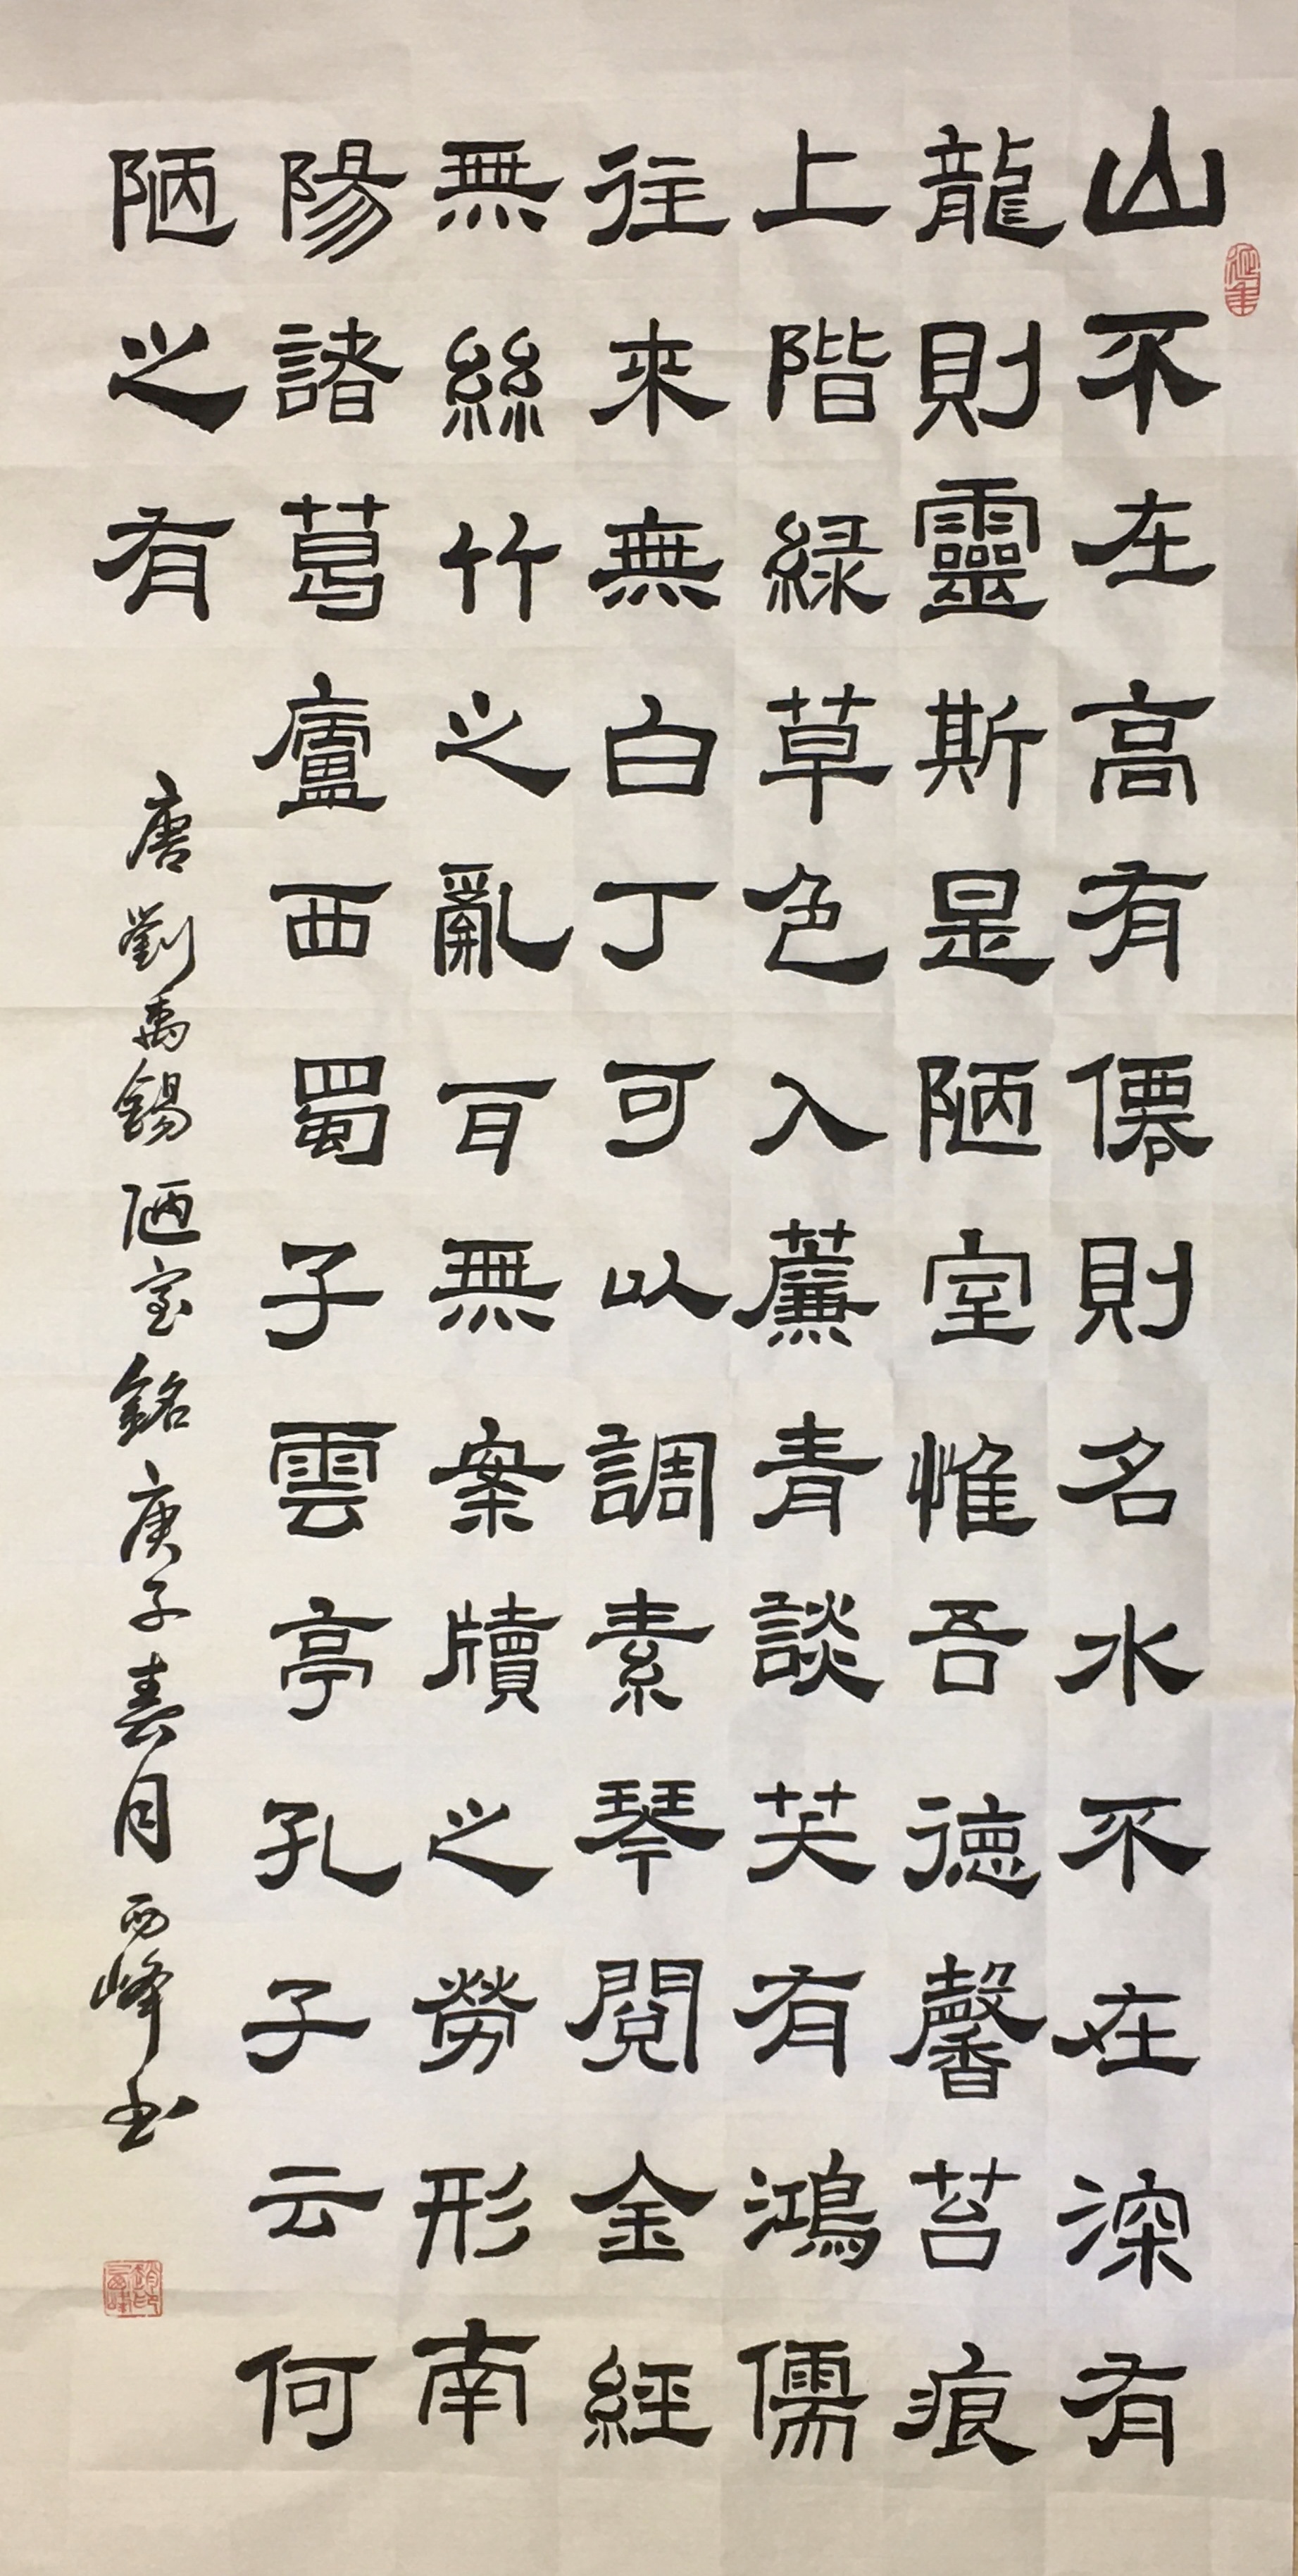 山不在高有僊則名水不在深有
龍則靈斯是陋室惟吾德馨苔痕
上階緑草色入簾青談笑有鴻儒
往來無白丁可以調素琴閱金經
無絲竹之亂耳無案牘之勞形南
陽諸葛廬西蜀子雲亭孔子云何
陋之有
唐劉禹錫陋室銘庚子春月西峰书